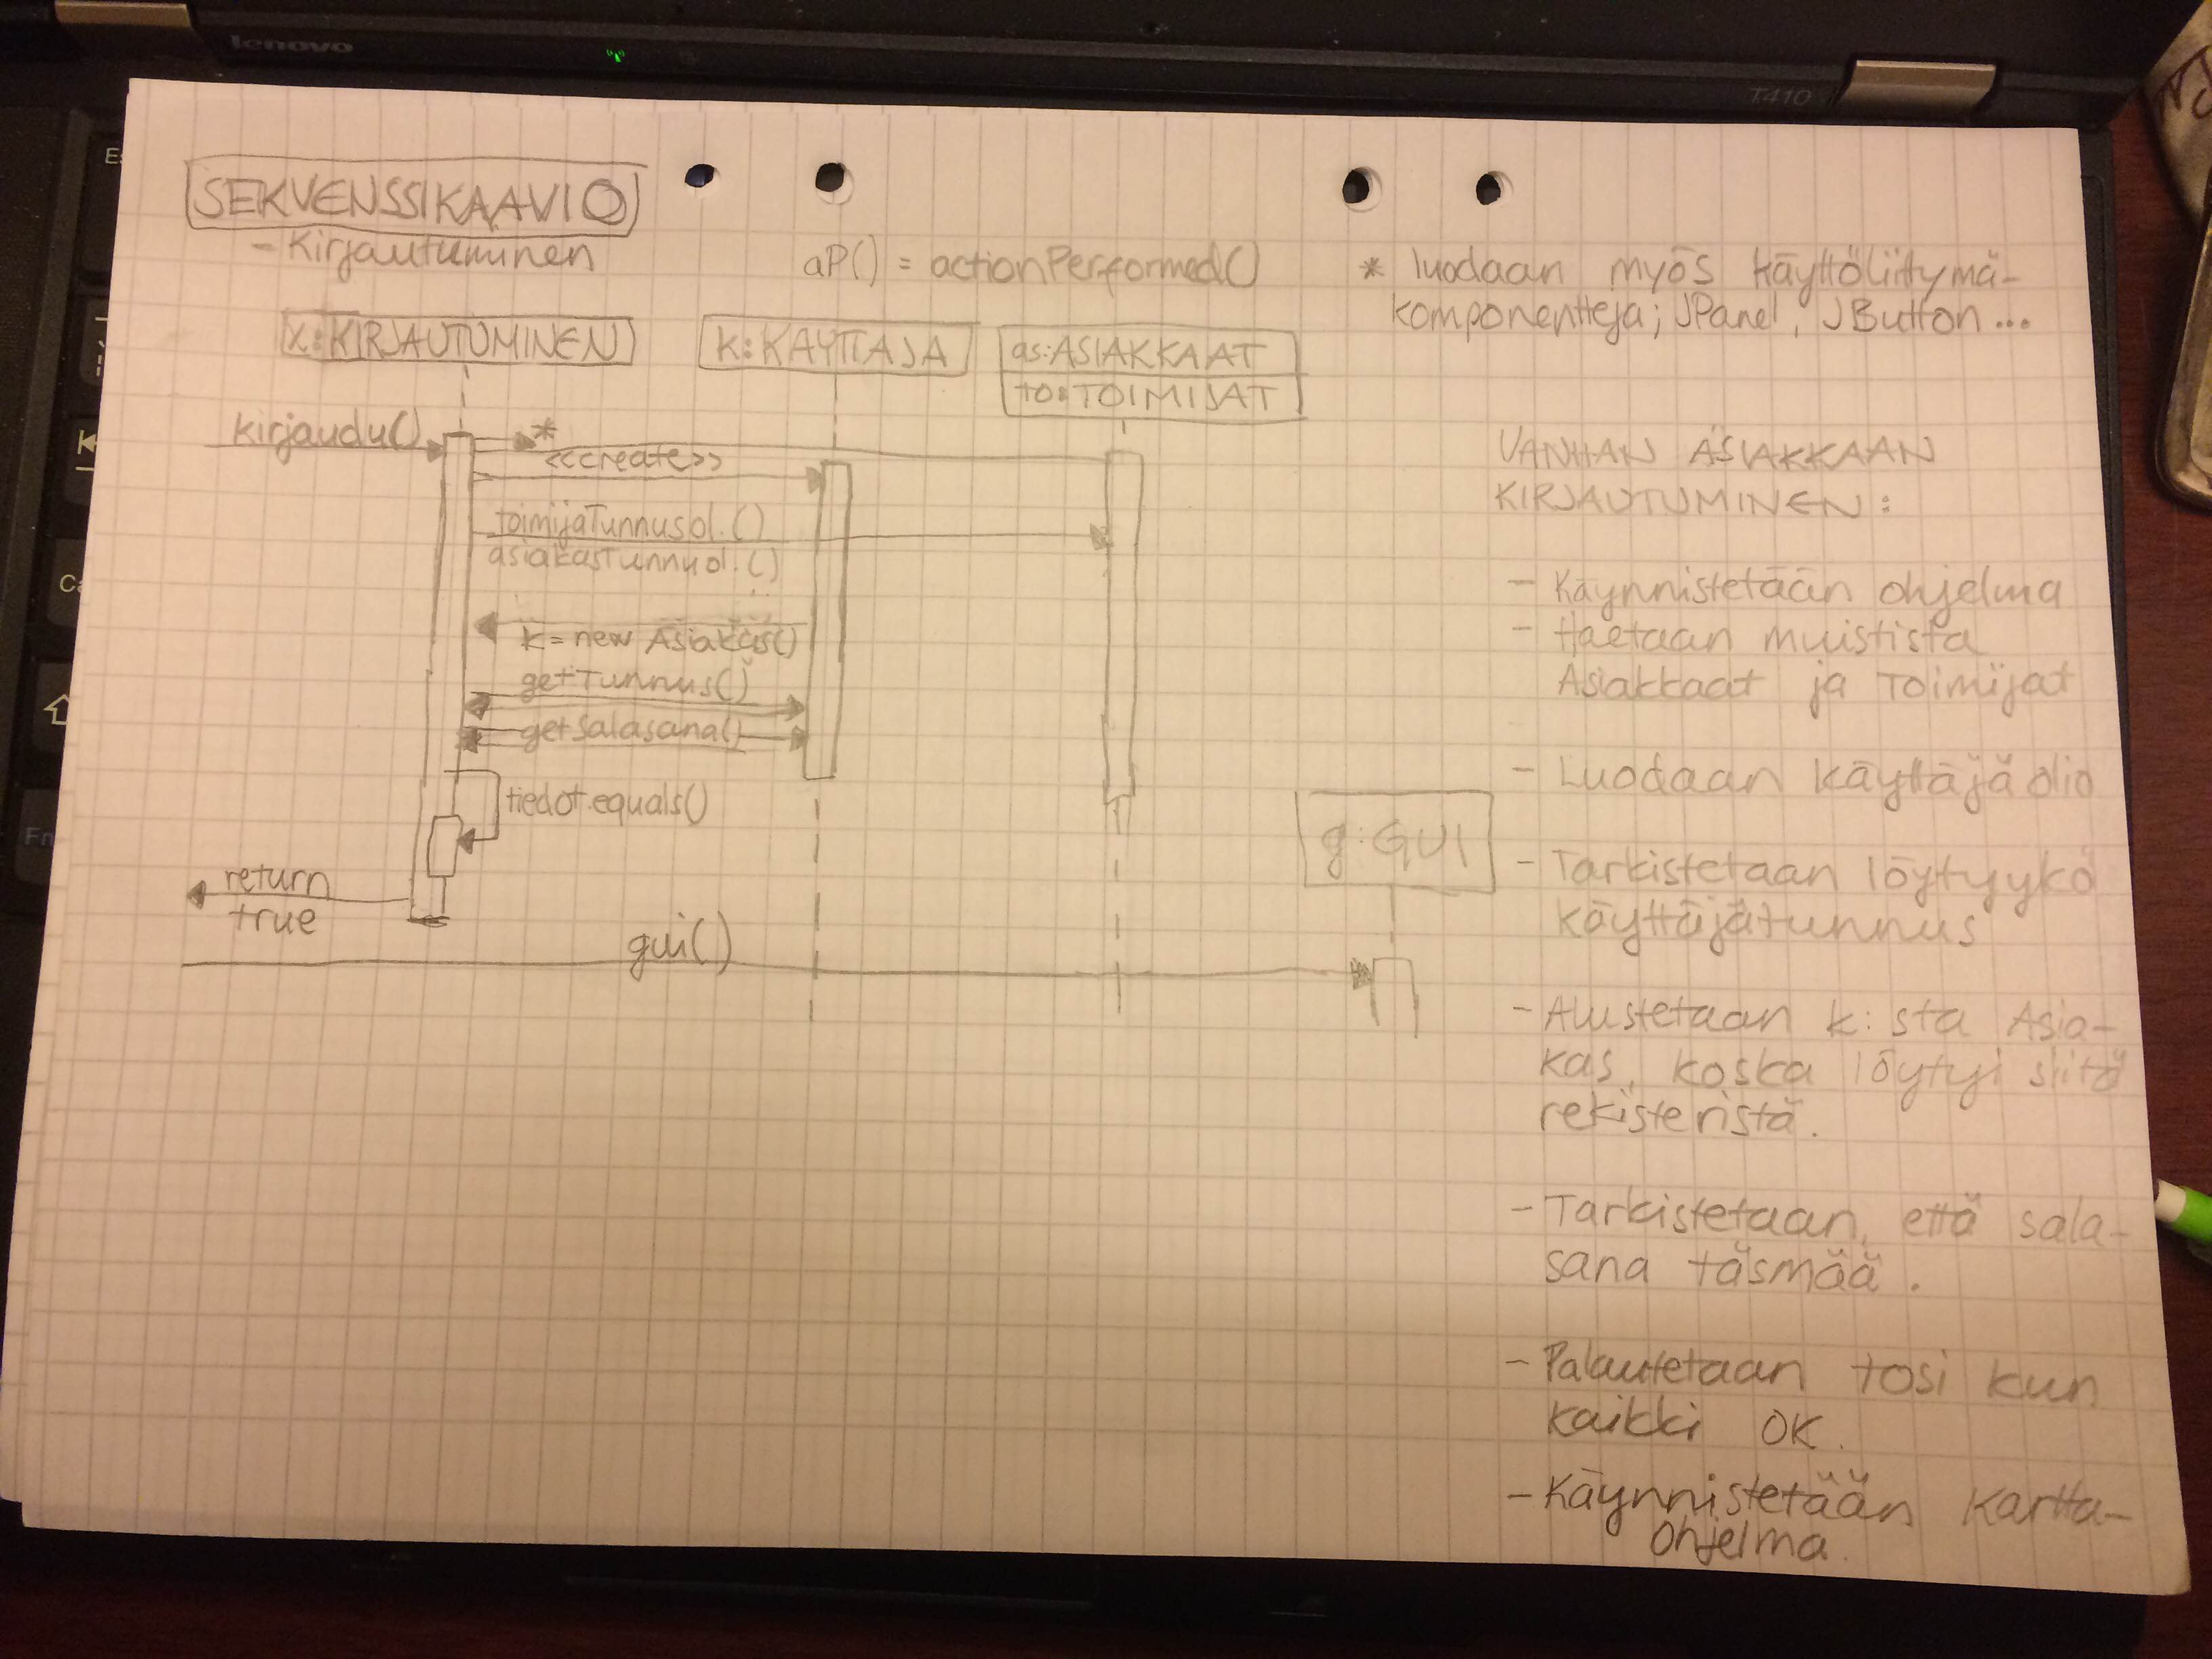 lenovo
T410
SEKVENSSIKAAVIO
- Kirjautuminen
aP() = actionPerformed()
* luodaan myös käyttöliitymä-
komponentteja; JPanel, JButton...
x:KIRJAUTUMINEN
k:KÄYTTÄJÄ
as:ASIAKKAAT
to:TOIMIJAT
kirjaudu()
*
<<create>>
toimijaTunnusol.()
asiakasTunnuol.()
k = new Asiakas()
getTunnus()
getSalasana()
tiedot.equals()
return
true
gui()
g:GUI
VANHAN ASIAKKAAN
KIRJAUTUMINEN:
- Käynnistetään ohjelma
- Haetaan muistista
Asiakkaat ja Toimijat
- Luodaan käyttäjä olio
- Tarkistetaan löytyykö
käyttäjätunnus
- Alustetaan k:sta Asia-
kas, koska löytyi siitä
rekisteristä.
- Tarkistetaan, että sala-
sana täsmää.
- Palautetaan tosi kun
kaikki OK.
- Käynnistetään Kartta-
ohjelma.